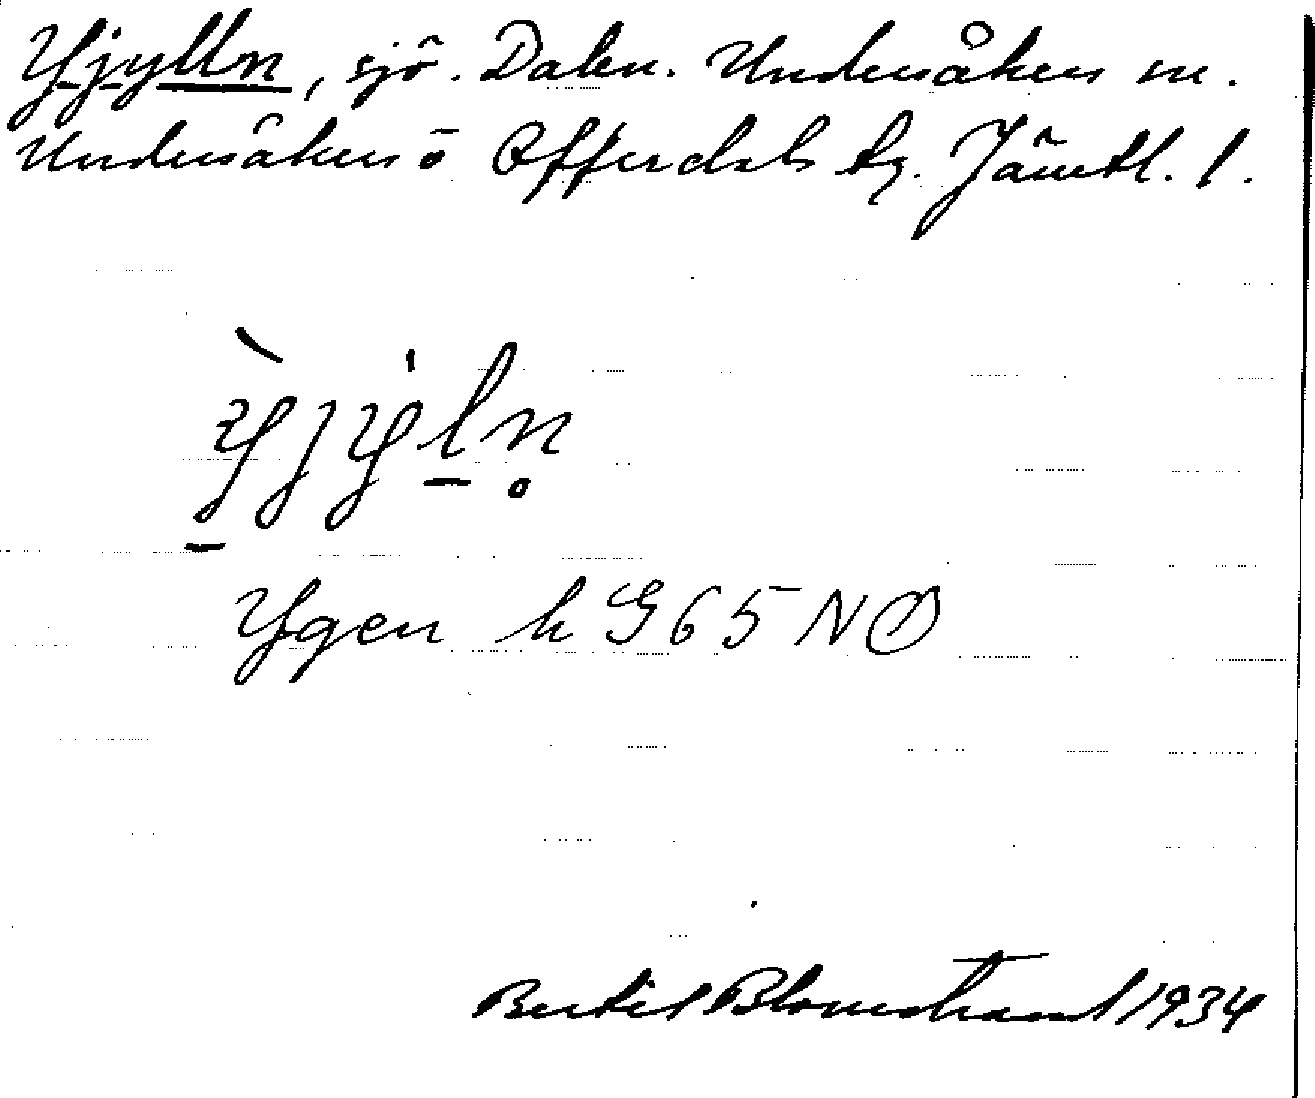 Yjylln, sjö. Dalsn. Undersåkers sn.
Undersåkers o Offerdals tg. Jämtl. l.
Ygen h G65 NO
Bertil Blomstrand 1934